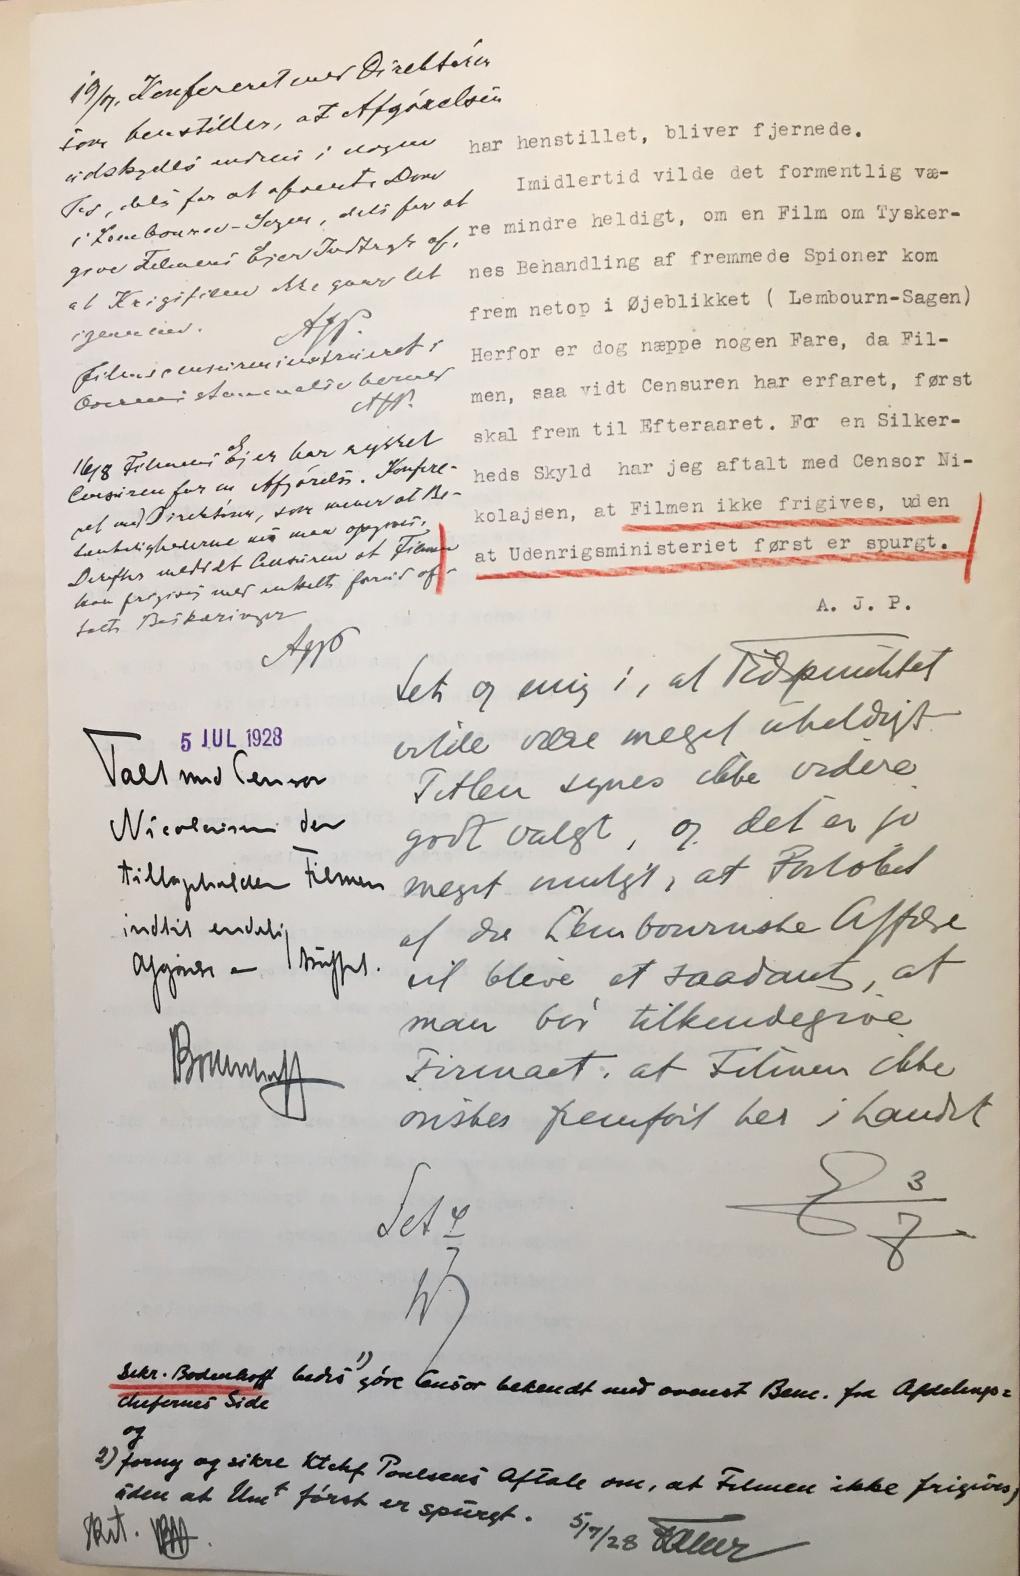 har henstillet, bliver fjernede.
Imidlertid vilde det formentlig væ-
re mindre heldigt, om en Film om Tysker-
nes Behandling af fremmede Spioner kom
frem netop i Øjeblikket ( Lembourn-Sagen)
Herfor er dog næppe nogen Fare, da Fil-
men, saa vidt Censuren har erfaret, først
skal frem til Efteraaret. For en Silker-
heds Skyld har jeg aftalt med Censor Ni-
kolajsen, at Filmen ikke frigives, uden
at Udenrigsministeriet først er spurgt.
A. J. P.
19/7. Konfereret med Direktøren
som henstiller, at Afgørelsen
udskydes endnu i nogen
Tid, dels for at afvente Dom
i Lembourn-Sagen, dels for at
give Filmens Ejer Indtryk af,
at Krigsfilm ikke gaar let
igennem.
Filmscensuren instrueret i
Overensstemmelse hermed
16/8 Filmens Ejer har rykket
Censuren for en Afgørelse. Konfe-
ret med Direktøren, som mener at Be-
tænkelighederne nu maa opgives.
Derefter meddelt Censuren at Filmen
kan frigives med enkelte forud af-
talte Beskæringer
Set og enig i, at Tidspunktet
vilde være meget uheldigt
Titlen synes ikke videre
godt valgt, og det er jo
meget muligt, at Forløbet
af den Lembournske Affære
vil blive et saadant, at
man bør tilkendegive
Firmaet, at Filmen ikke
ønskes fremført her i Landet
3
7
5 JUL 1928
Talt med Censor
Nicolaisen der
tilbageholder Filmen
indtil endelig
Afgørelse er truffet.
Bodenhoff
Set 4
7
Sekr. Bodenhoff bedes 1) gøre Censor bekendt med ovenst Bem. fra Afdelings=
chefernes Side
og
2) forny og sikre Ktchf Poulsens Aftale om, at Filmen ikke frigives,
uden at Umt først er spurgt.
5/7/28